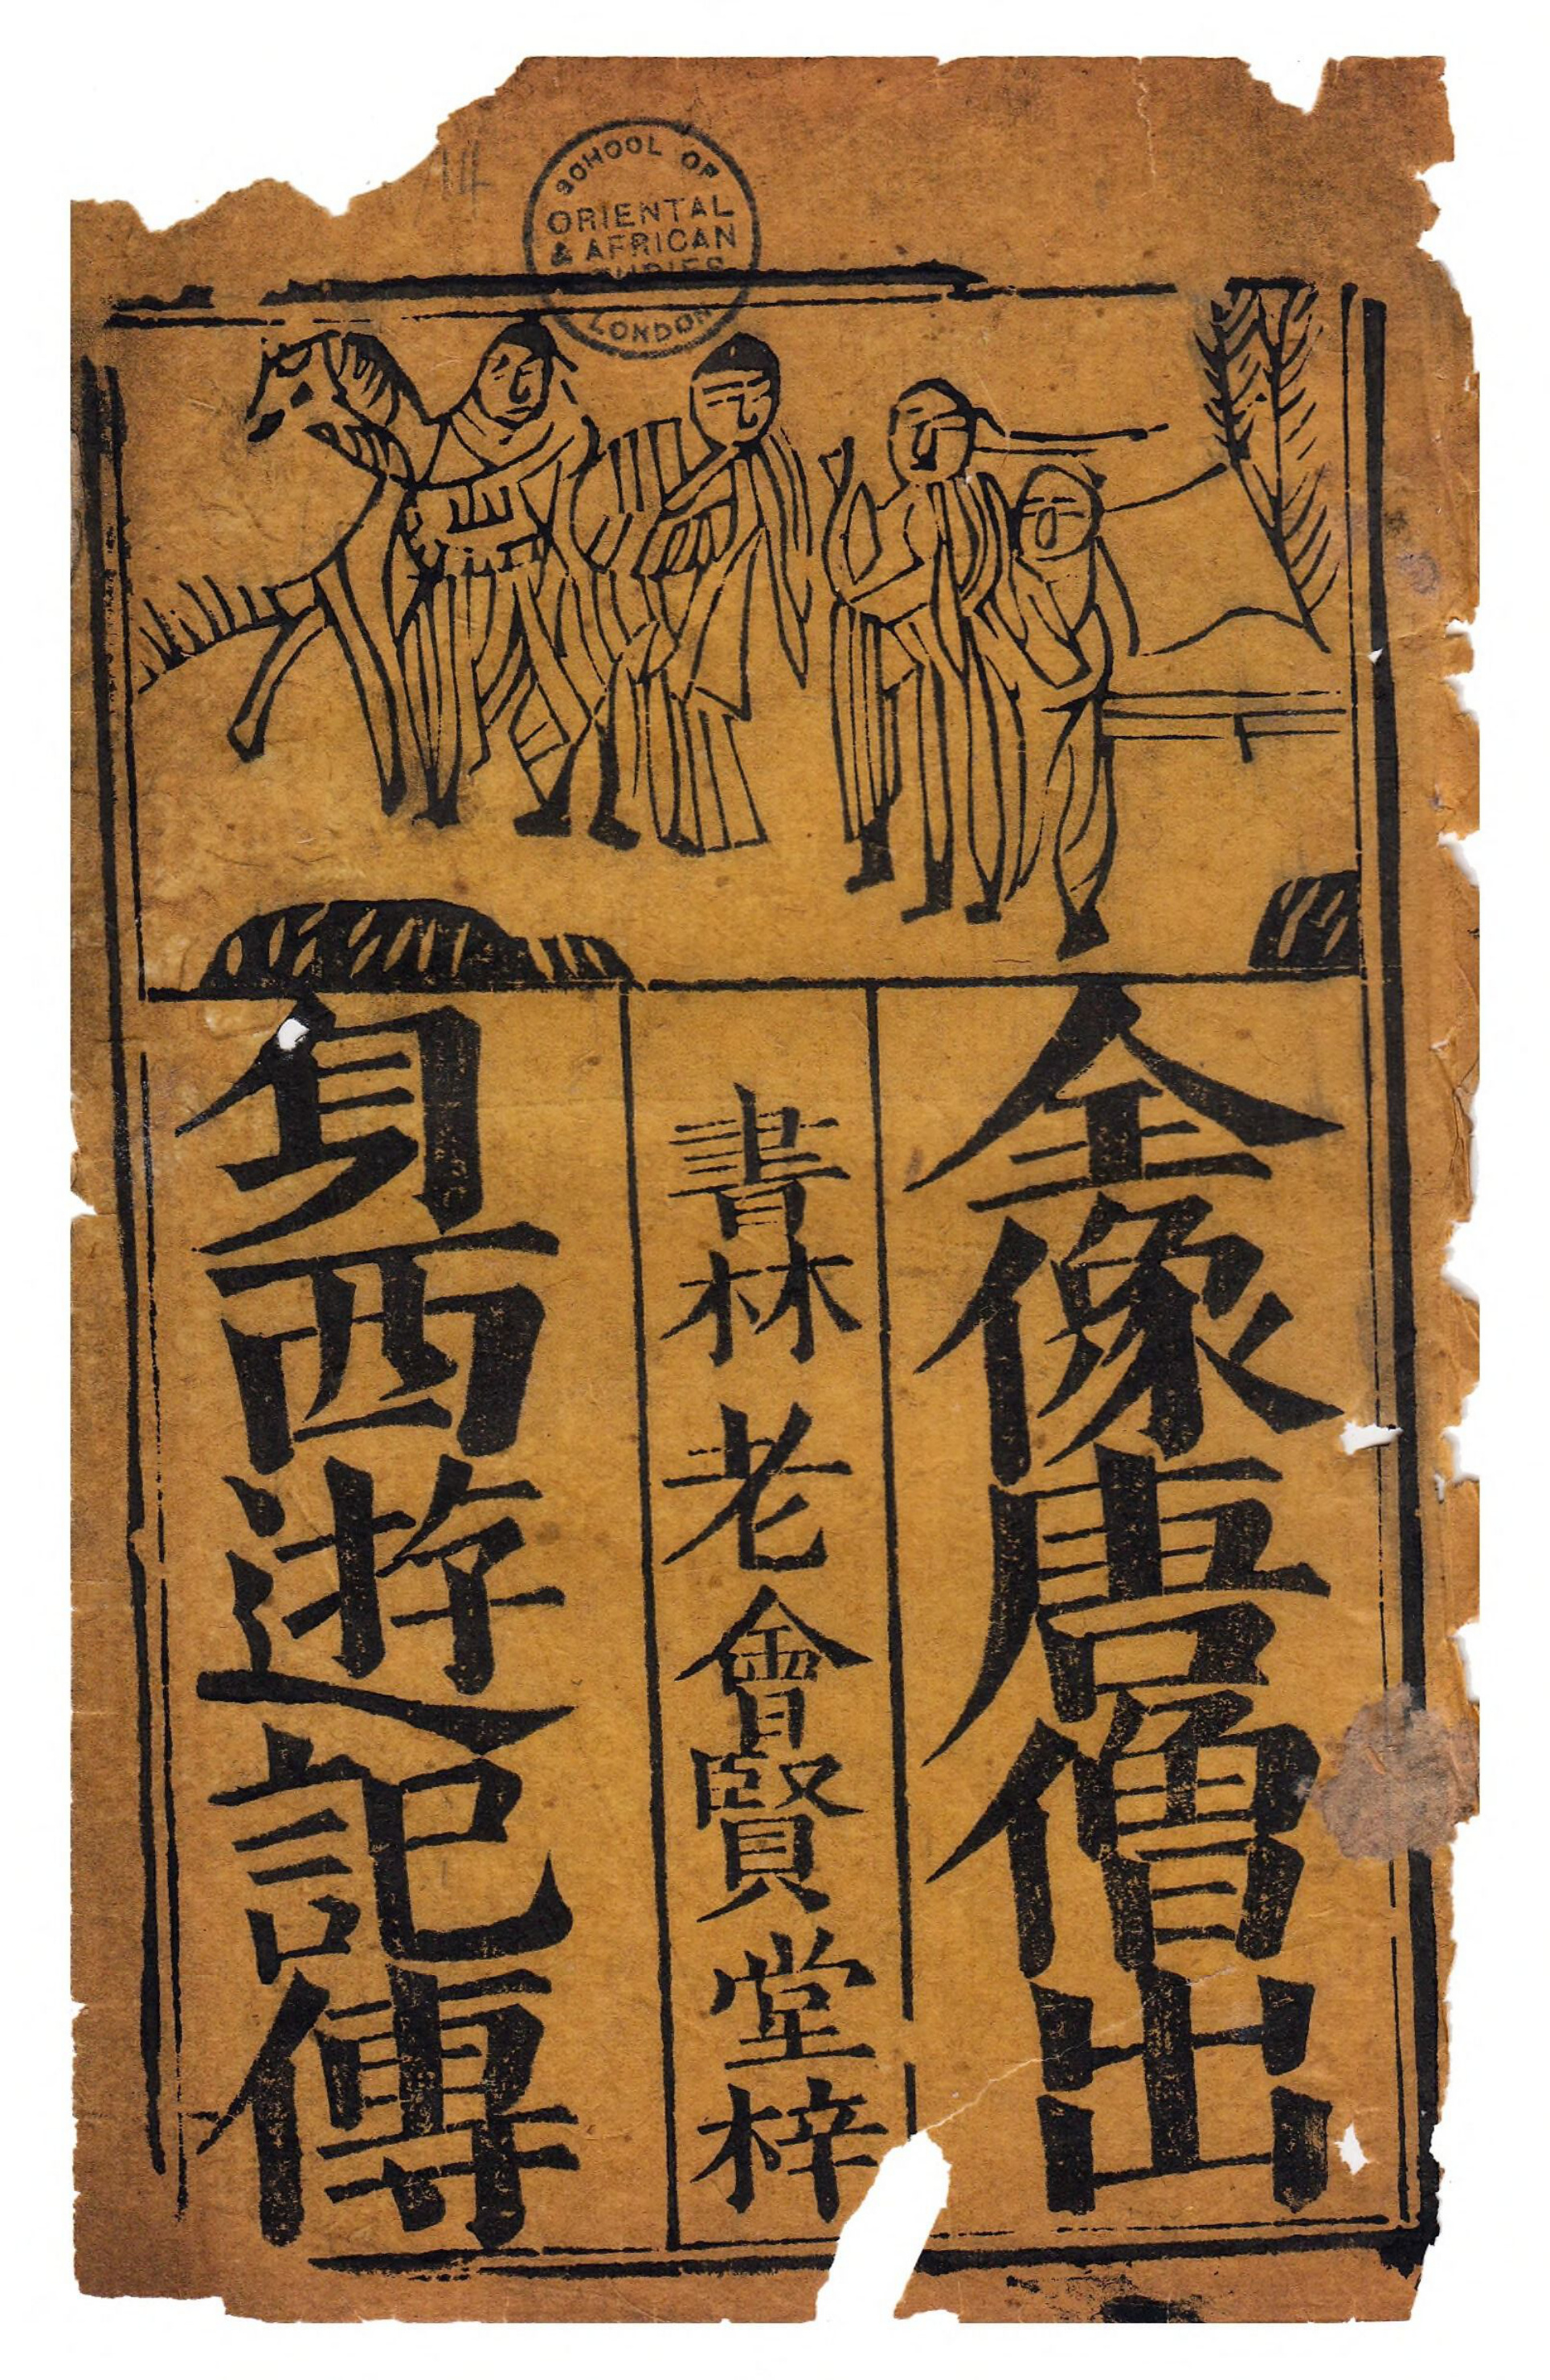 SCHOOL OF
ORIENTAL
& AFRICAN
STUDIES
LONDON
全像唐僧出
書林老會賢堂梓
身西遊記傳